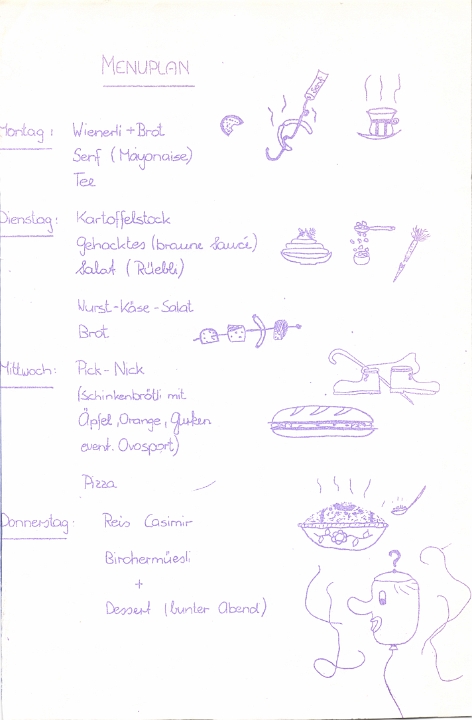 MENUPLAN
Montag: Wienerli + Brot
Senf (Mayonaise)
Tee
Senf
Dienstag: Kartoffelstock
Gehacktes (braune Saucé)
Salat (Rüebli)
Wurst-Käse-Salat
Brot
Mittwoch: Pick-Nick
(Schinkenbrötli mit
Äpfel, Orange, Gurken
event. Ovosport)
Pizza
Donnerstag: Reis Casimir
Birchermüesli
+
Dessert (bunter Abend)
?